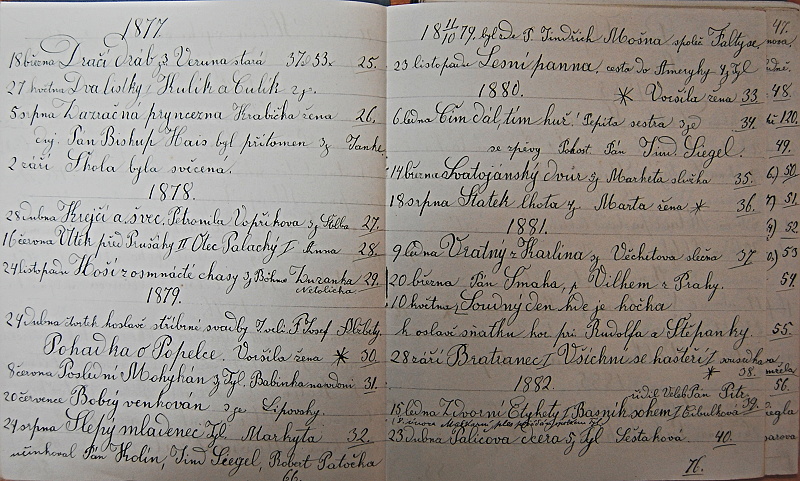 1877.
18 března Dračí dráb 3j. Veruna stará 37z 53x 25.
27 května Dva listky, Kulík a Čulík 2 j.
5 srpna Zazračná pryncezna Krabička žena 26.
dnj. Pán Biskup Hais byl přítomen 3j Janke
2 září Škola byla svěcena.
1878.
28 dubna Krejčí a švec. Petronila Vopřikova 3j Štolba 27.
16 června Utěk před Prušáky II Otec Palachý I Anna 28.
24 listopadu Hoši z osmnácté chasy 3j Böhm Zuzanka 29.
Netolička
1879.
24 dubna čtvrtek k oslavě stříbrné svadby J. veli. F. Josef Alžběty
Pohadka o Popelce. Voršila žena * 30.
8 června Poslední Mohykán 3j Tyl. Babinka na vdání 31.
20 července Bobrý venkován 3 je Lipovsky.
24 srpna Slepý mladenec Tyl Markyta 32.
učinkoval Pán Kolín, Jind Siegel, Robert Patočka
66.
18 11/10 79. byl zde P. Jindřich Mošna společ Faltyse
23 listopadu Lesní panna. cesta do Ameryky 4j Tyl
1880.
* Voršila žena 33
6 ledna Čím dál, tím huř! Pepita sestra 3 je 34.
se zpěvy Pohost. Pán Jind Siegel.
14 března Svatojánský dvůr 3j Marketa služka 35.
18 srpna Statek Lhota 3j Marta žena * 36.
1881.
9 ledna Vratný z Karlina 3j Věchetova slečna 37
20 března Pán Smaha, p Vilhem z Prahy.
10 května, Soudný den kde je kočka
k oslavě sňatku kor. pri Rudolfa a Štěpanky.
28 září Bratranec I Všichni se hašteří I sousedka
* 38.
1882.
řídil Veleb Pán Petr
15 ledna Zdvorní Etykety I Basník schem I Cibulková 39.
23 dubna Palicova dcera 5j Tyl Šestaková. 40.
76.
47.
48.
120.
49.
50
51
52
53
54.
55.
56.